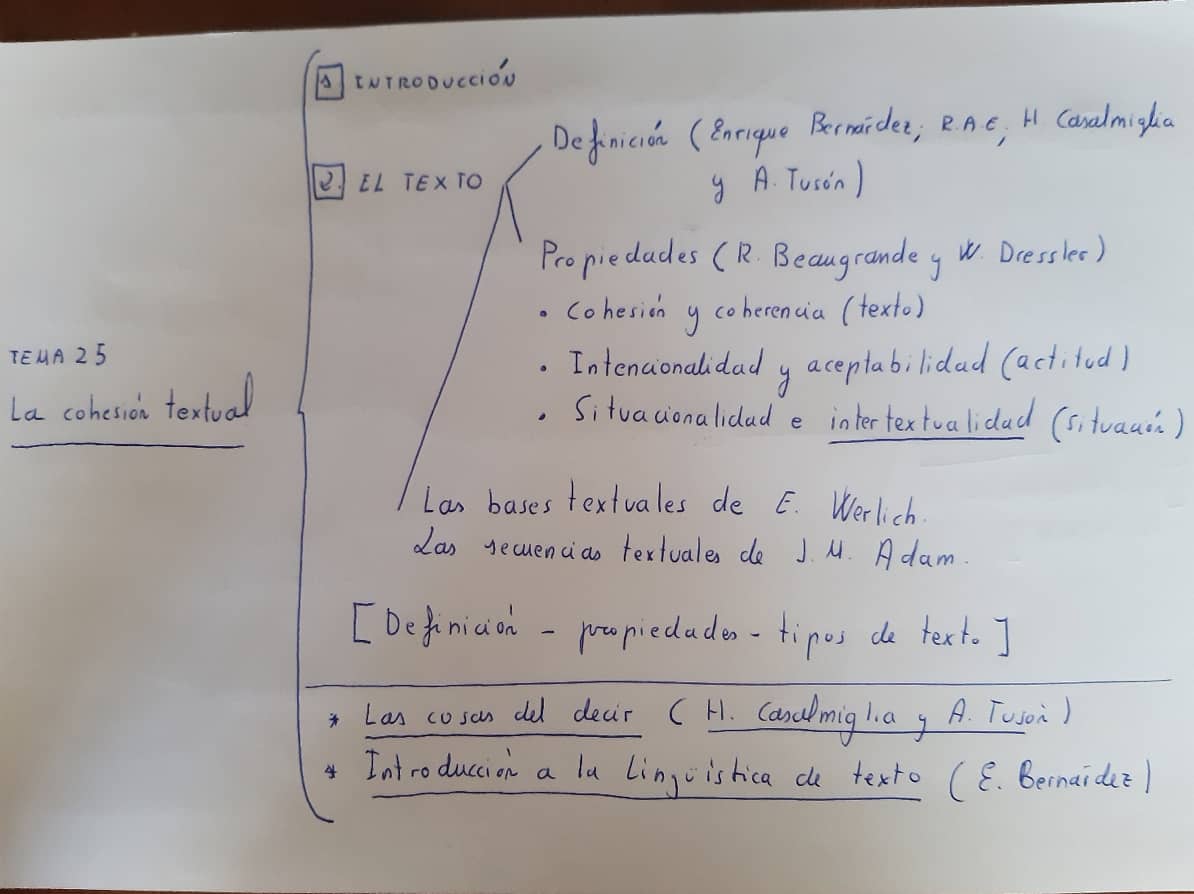 1 INTRODUCCIÓN
Definición (Enrique Bernárdez, R.A.E, H Casalmiglia
2. EL TEXTO
y A. Tusón)
Propiedades (R. Beaugrande y W. Dressler)
• Cohesión y coherencia (texto)
TEMA 25
• Intencionalidad y aceptabilidad (actitud)
La cohesión textual
• Situacionalidad e intertextualidad (situación)
Las bases textuales de E. Werlich.
Las secuencias textuales de J. M. Adam.
[Definición - propiedades - tipos de texto]
* Las cosas del decir (H. Casalmiglia y A. Tusón)
* Introducción a la Lingüística de texto (E. Bernárdez)